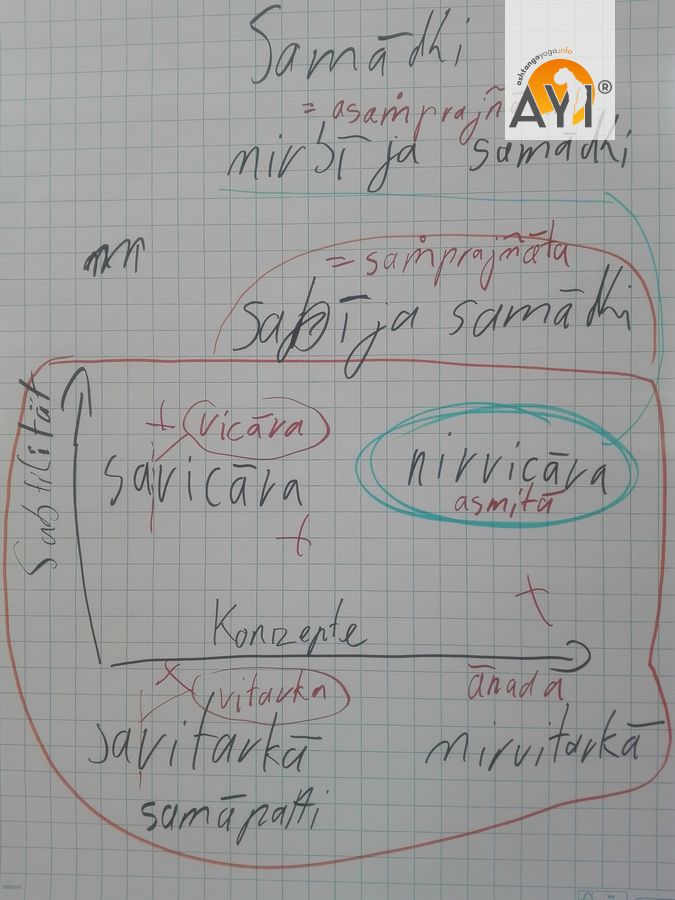 ashtangayoga.info
AYI®
Samādhi
= asaṁprajñ
nirbīja samādhi
= saṁprajñāta
sabīja samādhi
Subtilität
+ vicāra
savicāra
nirvicāra
asmitā
+
+
Konzepte
x vitarka
ānada
savitarkā
nirvitarkā
samāpatti